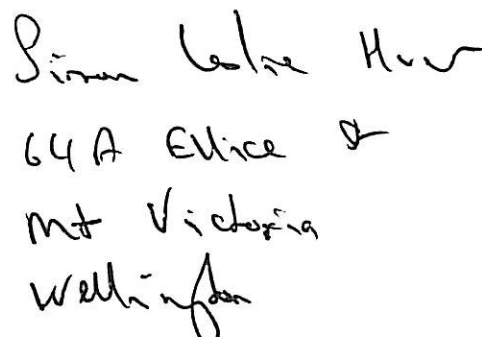 Simon Leslie
64A Ellice St
Mt Victoria
Wellington